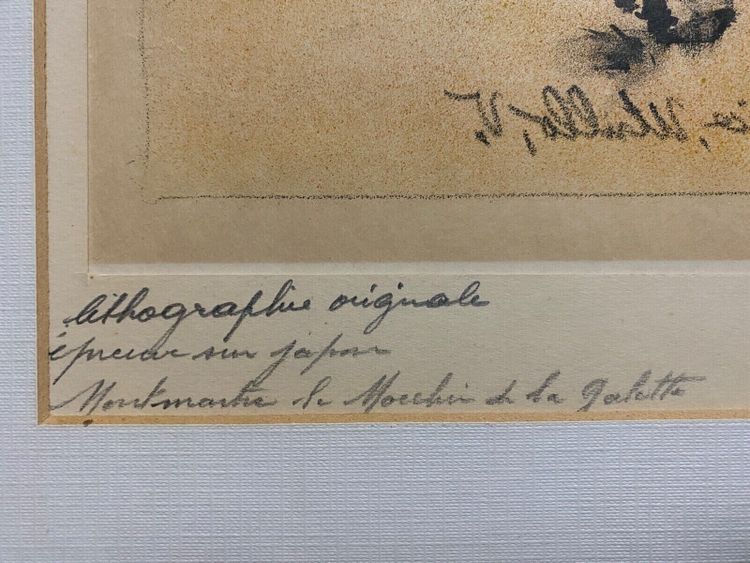 Utrillo, V.
lithographie originale
épreuve sur japon
Montmartre le Moulin de la Galette